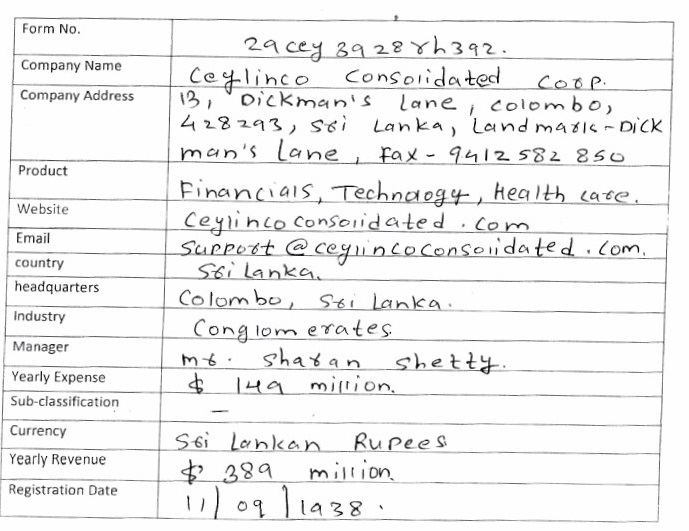 Form No.
29cey3928rh392.
Company Name
Ceylinco Consolidated Corp.
Company Address
13, Dickman's Lane, Colombo,
428293, Sri Lanka, Landmark-Dick
man's Lane, Fax-9412582850
Product
Financials, Technology, Health care.
Website
Ceylincoconsolidated.com
Email
Support@ceylincoconsolidated.com.
country
Sri Lanka.
headquarters
Colombo, Sri Lanka.
Industry
Conglomerates.
Manager
Mr. Sharan Shetty.
Yearly Expense
$ 149 million.
Sub-classification
—
Currency
Sri Lankan Rupees
Yearly Revenue
$ 389 million.
Registration Date
11/09/1938.